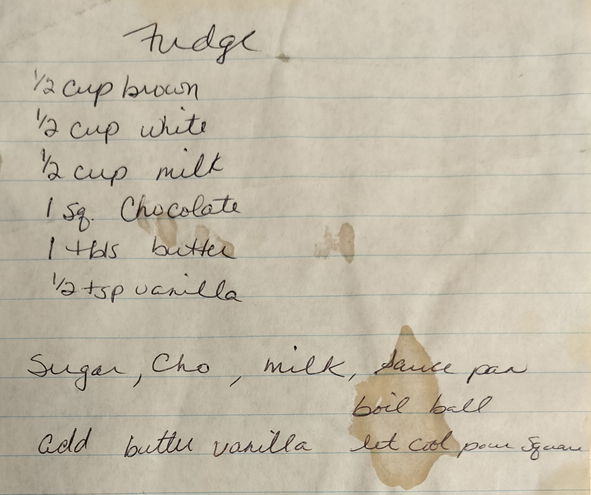 Fudge
1/2 cup brown
1/2 cup white
1/2 cup milk
1 sq. Chocolate
1 tbls butter
1/2 tsp vanilla
Sugar, Cho, milk, Sauce pan
boil ball
add butter vanilla let cool pour Square